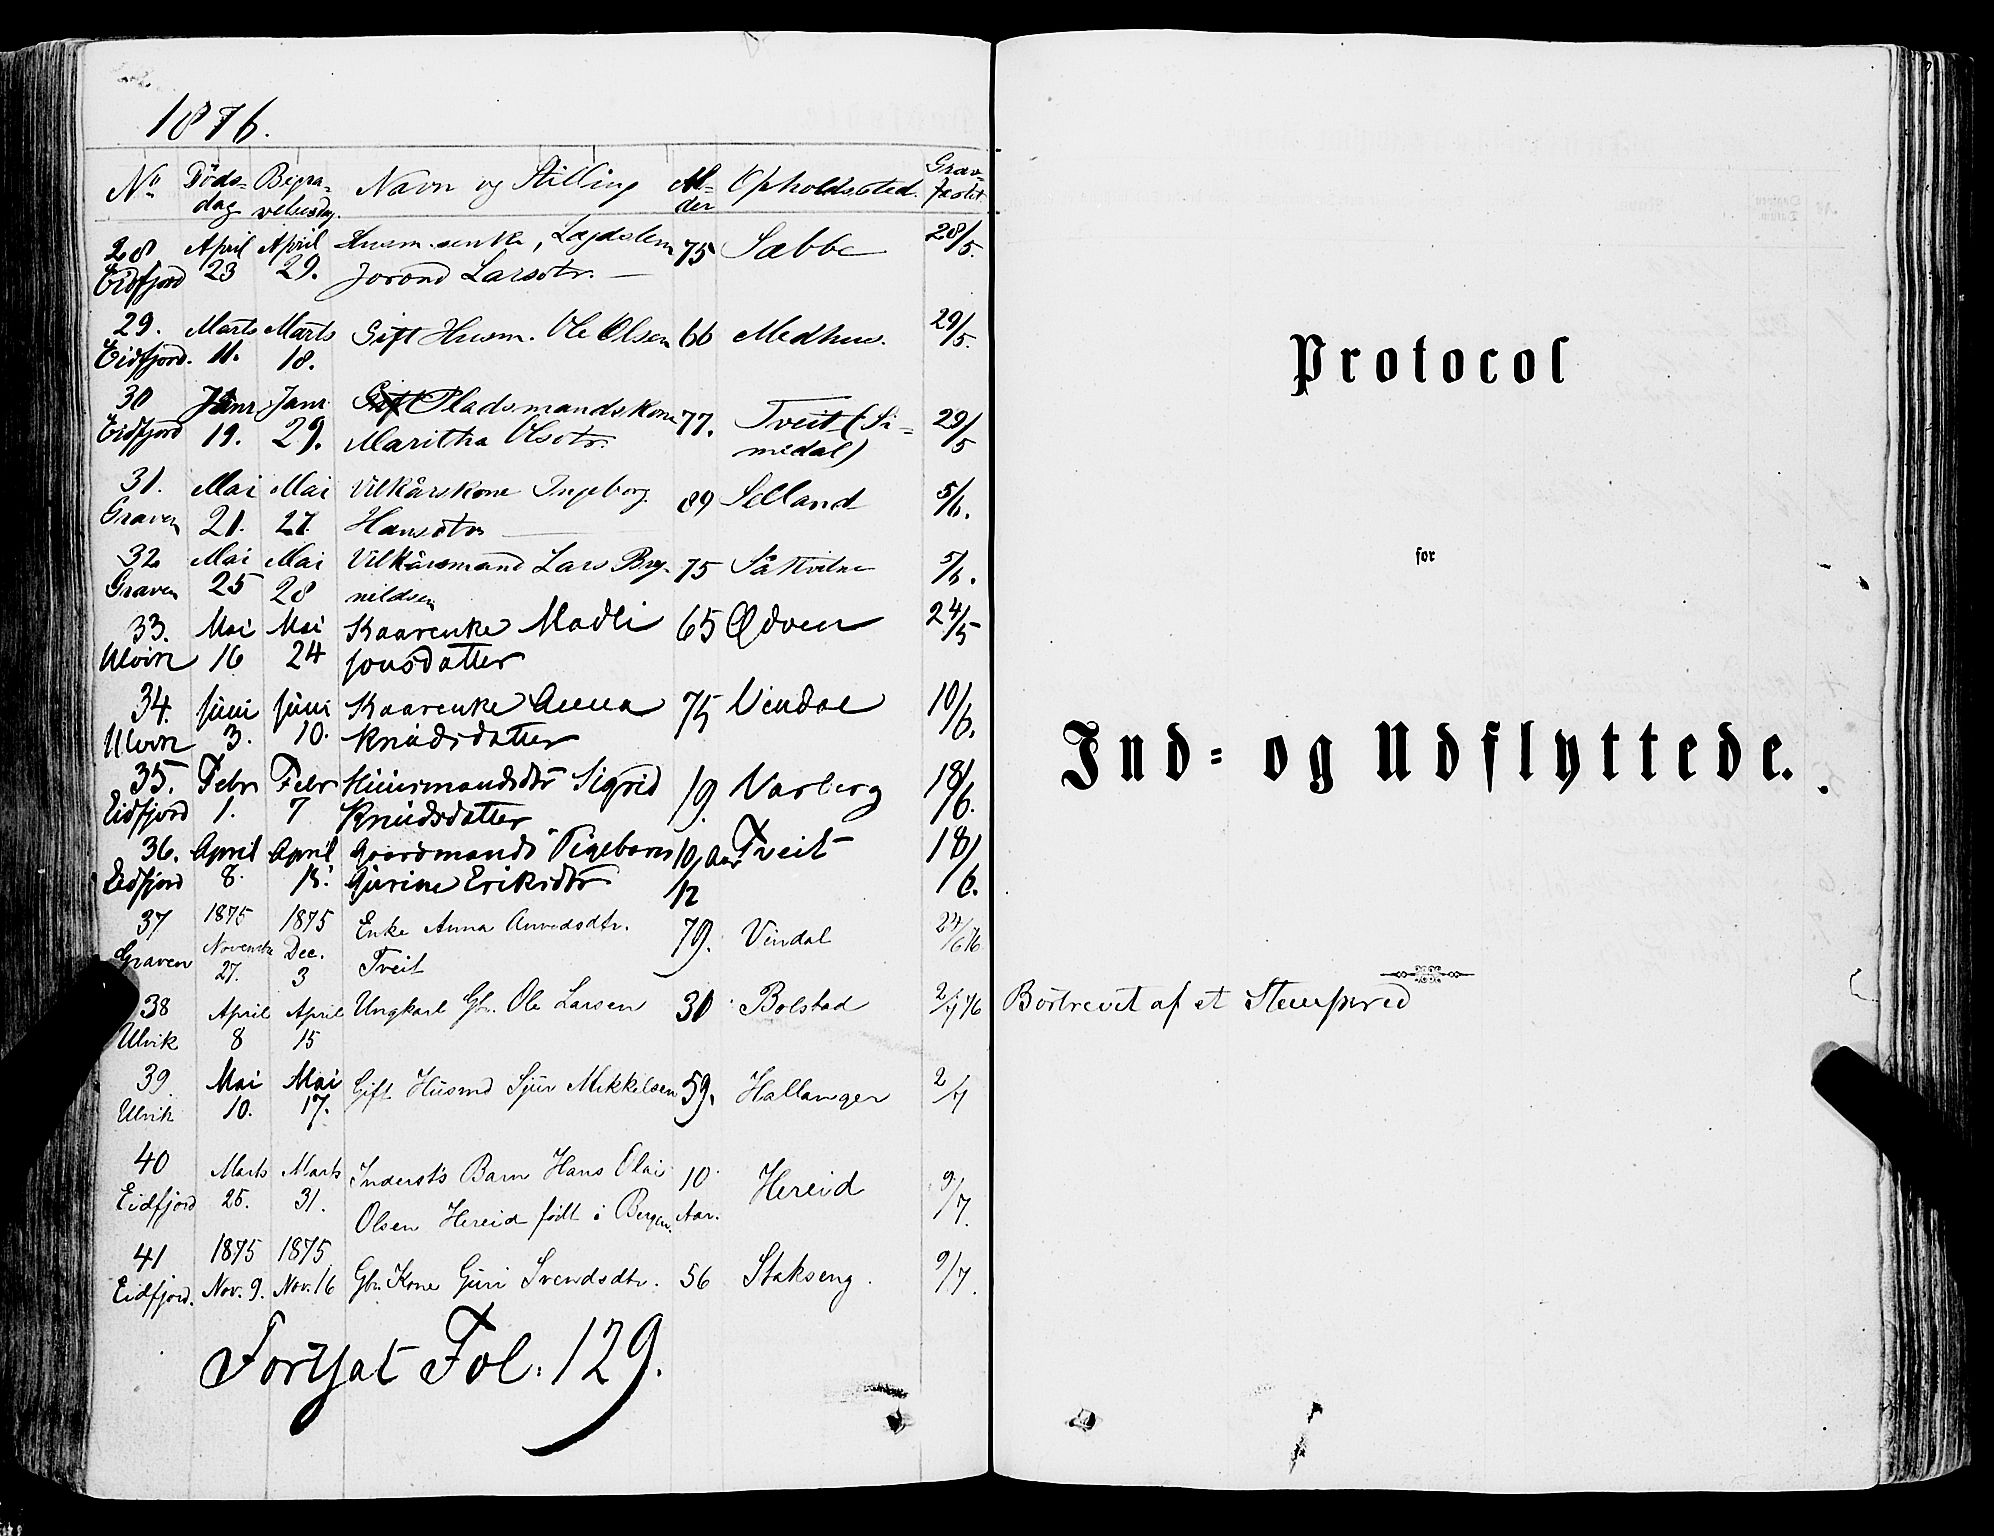 1876.
No Døds- Begra- Navn og Stilling Al- Opholdssted. Grav-
dag velsesdag. der fæstet.
28 April April Husm.enke, Lægdslem 75 Sæbbe 28/5.
Eidfjord 23 29. Jorond Larsdtr. —
29. Marts Marts Gift Husm. Ole Olsen 66 Medhus. 29/5.
Eidfjord. 11. 18.
30 Janr Janr Pladsmandskone 77. Tveit (Si- 29/5
Eidfjord 19. 29. Maritha Olsdtr. medal)
31. Mai Mai Vilkårskone Ingeborg 89 Selland 5/6.
Graven 21. 27. Hansdtr —
32 Mai Mai Vilkårsmand Lars Bry- 75 5/6.
Graven 25 28 nildsen
33. Mai Mai Kaarenke Madli 65 Ødven 24/5
Ulvik 16 24 Jonsdatter
34. Juni Juni Kaarenke Anna 75 Vindal 10/6.
Ulvik 3. 10. Knudsdatter
35. Febr Febr Huusmandsdtr Sigrid 19. Varberg 18/6.
Eidfjord 1. 7 Knudsdatter
36. April April Gaardmands Pigebarn 10 Aar Tveit 18/6.
Eidfjord 8. 15. Gurine Eriksdtr 12
37 1875 1875 Enke Anna Amundsdtr. 79. Vindal 24/6 76
Graven November Dec. Tveit
27. 3
38 April April Ungkarl Gbr. Ole Larsen 30 Bolstad 2/7 76
Ulvik 8 15
39. Mai Mai Gift Husmd Sjur Mikkelsen 59. Hallanger 2/7
Ulvik 10. 17.
40 Marts Marts Inderst's Barn Hans Olai 10 Hereid 9/7.
Eidfjord 25. 31. Olsen Hereid født i Bergen. Aar.
41 1875 1875
Eidfjord. Nov. 9. Nov. 16 Gbr. Kone Guri Svendsdtr. 56 Stakseng. 9/7.
Fortsat Fol. 129.
Protocol
for
Ind- og Udflyttede.
Bortrevet af et